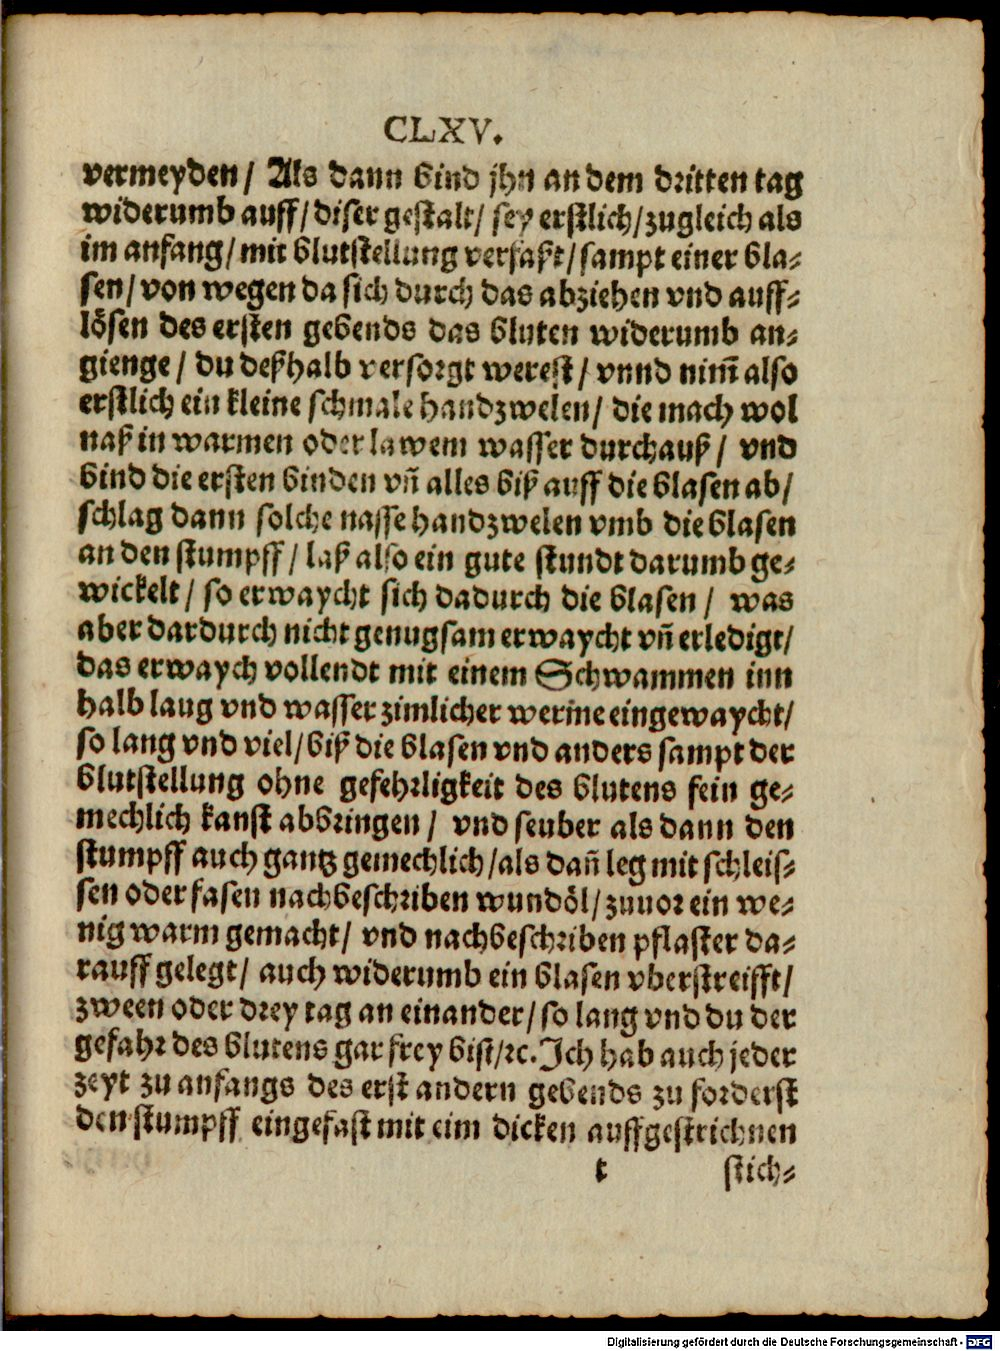 CLXV.
vermeyden / Als dann bind jhn an dem dritten tag
widerumb auff / diser gestalt / sey erstlich / zugleich als
im anfang / mit blutstellung verfaßt / sampt einer bla⸗
sen / von wegen da sich durch das abziehen vnd auff⸗
lösen des ersten gebends das bluten widerumb an⸗
gienge / du deßhalb versorgt werest / vnnd nim̃ also
erstlich ein kleine schmale handzwelen / die mach wol
naß in warmen oder lawem wasser durchauß / vnd
bind die ersten binden vn̄ alles biß auff die blasen ab /
schlag dann solche nasse handzwelen vmb die blasen
an den stumpff / laß also ein gute stundt darumb ge⸗
wickelt / so erwaycht sich dadurch die blasen / was
aber dardurch nicht genugsam erwaycht vn̄ erledigt /
das erwaych vollendt mit einem Schwammen inn
halb laug vnd wasser zimlicher werme eingewaycht /
so lang vnd viel / biß die blasen vnd anders sampt der
blutstellung ohne gefehrligkeit des blutens fein ge⸗
mechlich kanst abbringen / vnd seuber als dann den
stumpff auch gantz gemechlich / als dan̄ leg mit schleis⸗
sen oder fasen nachbeschriben wundöl / zuuor ein we⸗
nig warm gemacht / vnd nachbeschriben pflaster da⸗
rauff gelegt / auch widerumb ein blasen vberstreifft /
zween oder drey tag an einander / so lang vnd du der
gefahr des blutens gar frey bist / ꝛc. Ich hab auch jeder
zeyt zu anfangs des erst andern gebends zu forderst
den stumpff eingefast mit eim dicken auffgestrichnen
t stich⸗
Digitalisierung gefördert durch die Deutsche Forschungsgemeinschaft - DFG